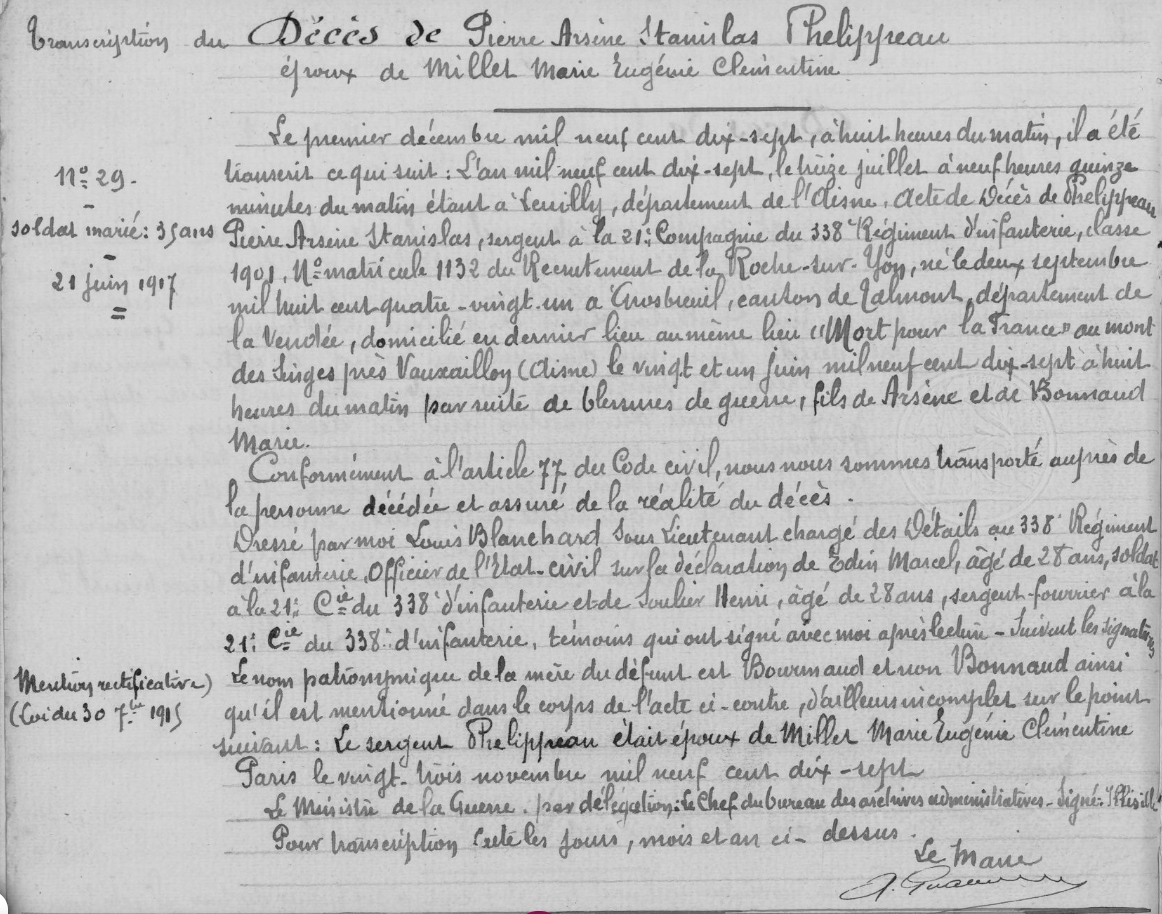 Transcription du Décès de Pierre Arsène Stanislas Phelippeau
époux de Millet Marie Eugénie Clémentine
Le premier décembre mil neuf cent dix-sept, à huit heures du matin, il a été
transcrit ce qui suit : L'an mil neuf cent dix-sept, le treize juillet à neuf heures quinze
minutes du matin étant à Leuilly, département de l'Aisne, Acte de Décès de Phelippeau
Pierre Arsène Stanislas, sergent à la 21e Compagnie du 338e Régiment d'infanterie, classe
1901, No matricule 1132 du Recrutement de la Roche-sur-Yon, né le deux septembre
mil huit cent quatre-vingt-un à Grosbreuil, canton de Talmont, département de
la Vendée, domicilié en dernier lieu au même lieu "Mort pour la France" au mont
des Singes près Vauxaillon (Aisne) le vingt et un Juin mil neuf cent dix-sept à huit
heures du matin par suite de blessures de guerre, fils de Arsène et de Bonnaud
Marie.
Conformément à l'article 77 du Code civil, nous nous sommes transporté auprès de
la personne décédée et assuré de la réalité du décès.
Dressé par moi Louis Blanchard Sous Lieutenant chargé des Détails au 338e Régiment
d'infanterie, Officier de l'Etat-civil sur la déclaration de Edin Marcel, âgé de 28 ans, soldat
à la 21e Cie du 338e d'infanterie et de Soulier Henri, âgé de 28 ans, sergent-fourrier à la
21e Cie du 338e d'infanterie, témoins qui ont signé avec moi après lecture - Suivent les signatures
Le nom patronymique de la mère du défunt est Bourmaud et non Bonnaud ainsi
qu'il est mentionné dans le corps de l'acte ci-contre, d'ailleurs incomplet sur le point
suivant : Le sergent Phelippeau était époux de Millet Marie Eugénie Clémentine
Paris le vingt-trois novembre mil neuf cent dix-sept
Le Ministre de la Guerre. par délégation : Le Chef du bureau des archives administratives - Signé : Illisible
Pour transcription les jours, mois et an ci-dessus.
Le Maire
No 29.
soldat marié : 35 ans
21 juin 1917
Mention rectificative)
(Loi du 30 7bre 1915